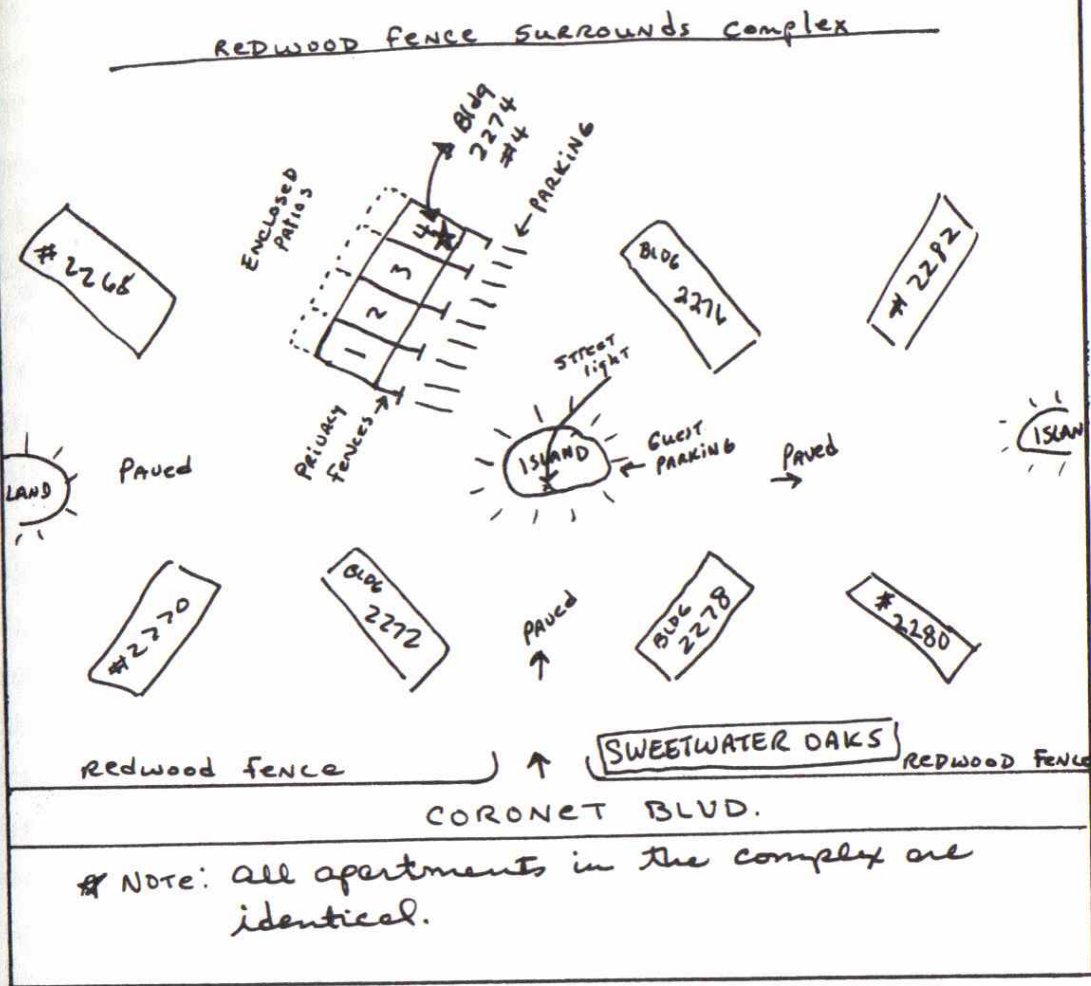 REDWOOD FENCE SURROUNDS Complex
Bldg
2274
#4
PARKING
ENCLOSED
PATIOS
# 2268
4
3
2
1
BLDG
2276
# 2282
STREET
light
PRIVACY
FENCES
ISLAND
GUEST
PARKING
PAVED
ISLAN
LAND
PAVED
#2270
BLDG
2272
PAVED
BLDG
2278
#
2280
Redwood FENCE
SWEETWATER OAKS
REDWOOD FENCE
CORONET BLVD.
* NOTE: all apartments in the complex are
identical.